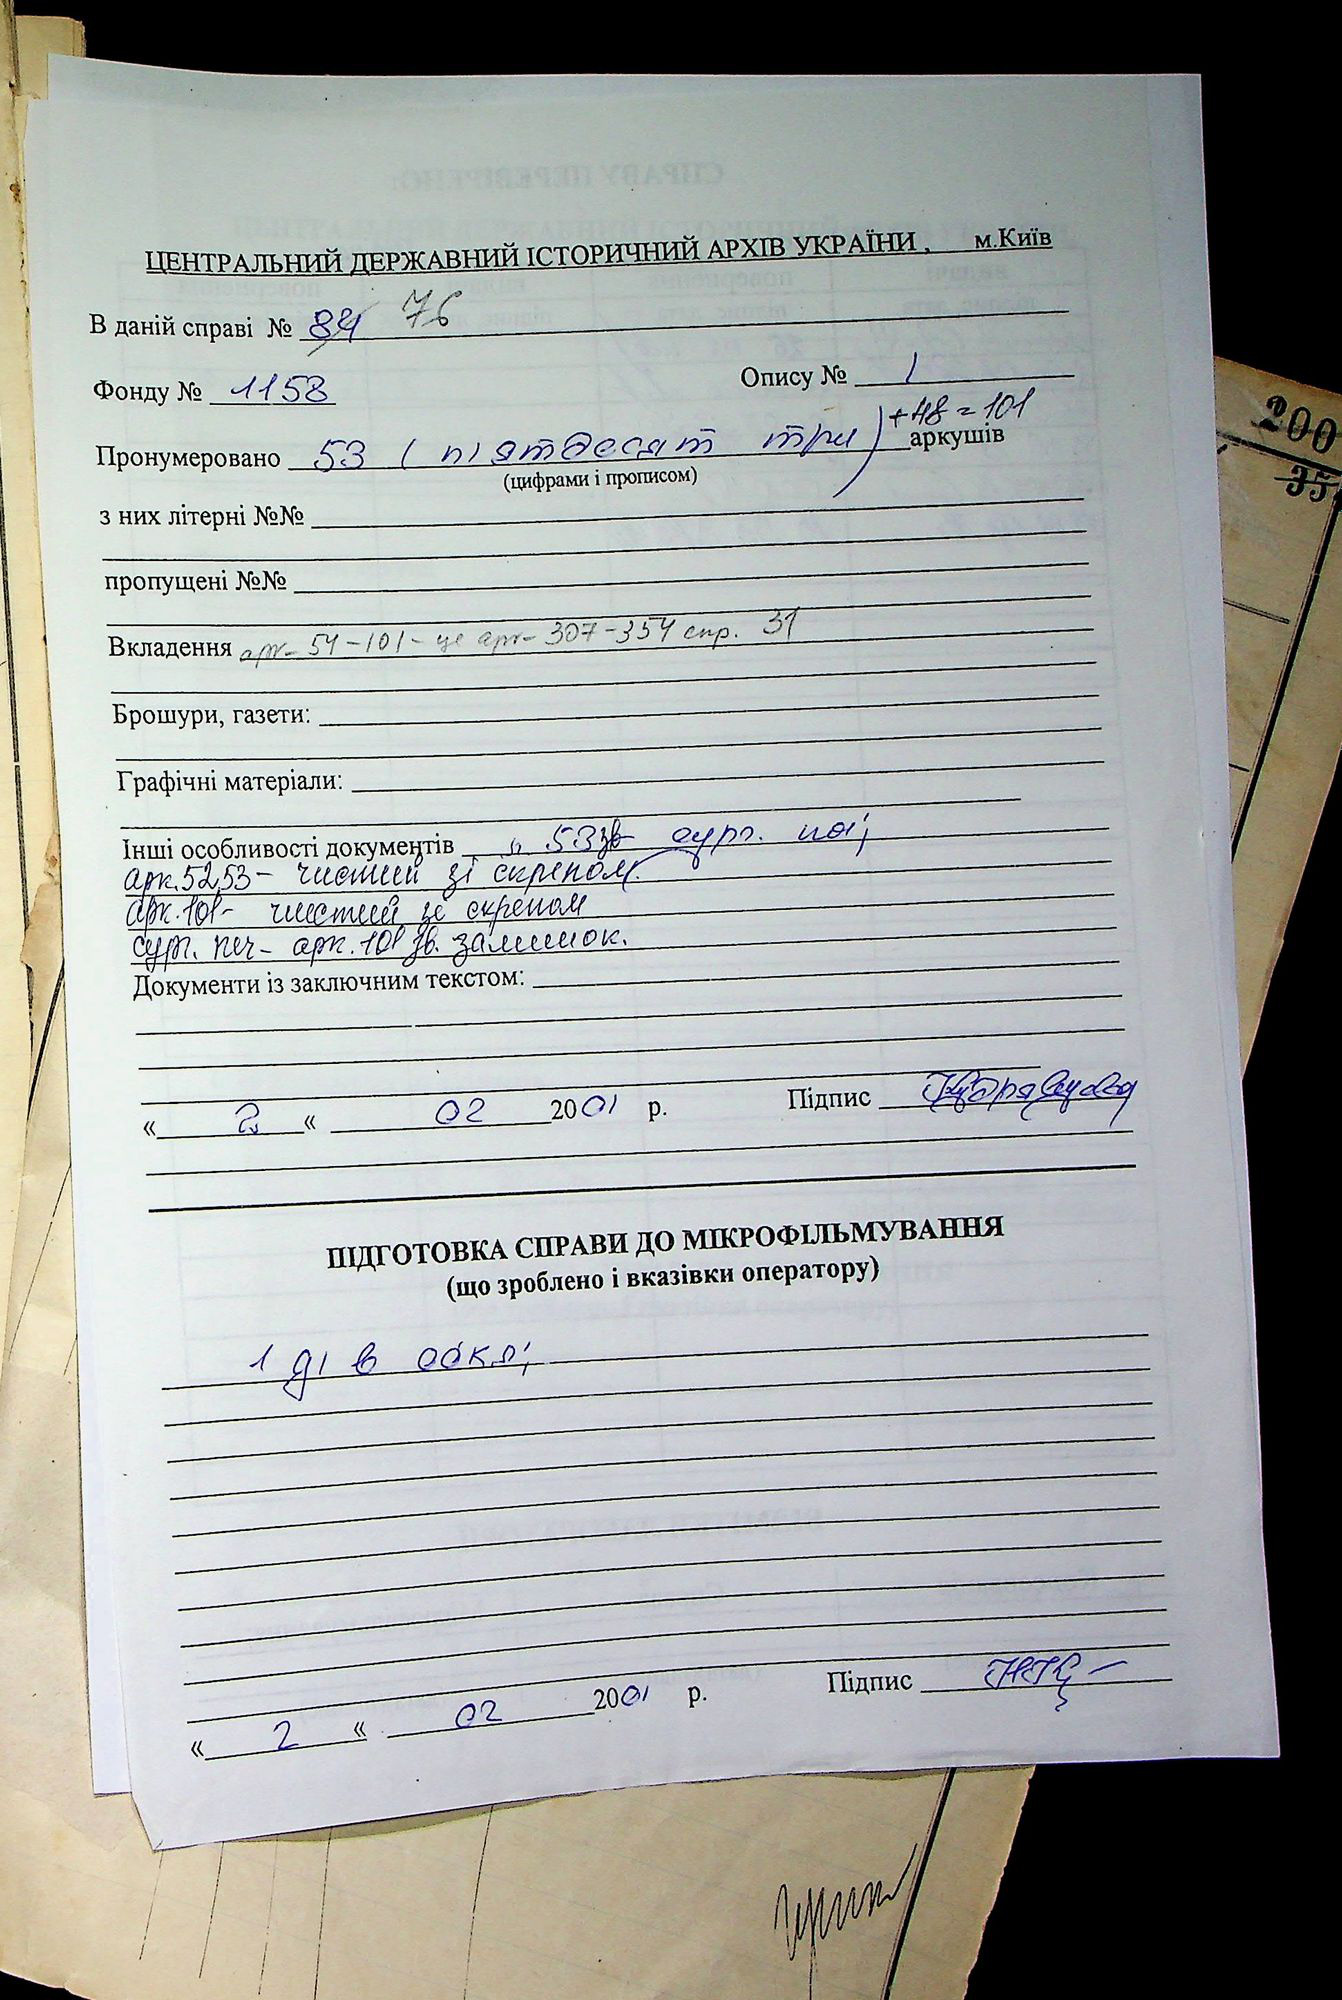 ЦЕНТРАЛЬНИЙ ДЕРЖАВНИЙ ІСТОРИЧНИЙ АРХІВ УКРАЇНИ , м.Київ
В даній справі № 84 76
Фонду № 1158 Опису № 1
+48 = 101
Пронумеровано 53 (п'ятдесят три) аркушів
(цифрами і прописом)
з них літерні №№
пропущені №№
Вкладення арк. 54-101 - це арк. 307-354 спр. 31
Брошури, газети:
Графічні матеріали:
Інші особливості документів 53 зв сург. печ;
арк. 52,53 - чистий зі скрепом.
арк. 101 - чистий зі скрепом
сург. печ - арк. 101 зв. залишок.
Документи із заключним текстом:
« 2 « 02 2001 р. Підпис
ПІДГОТОВКА СПРАВИ ДО МІКРОФІЛЬМУВАННЯ
(що зроблено і вказівки оператору)
1 в
« 2 « 02 2001 р. Підпис
200
35